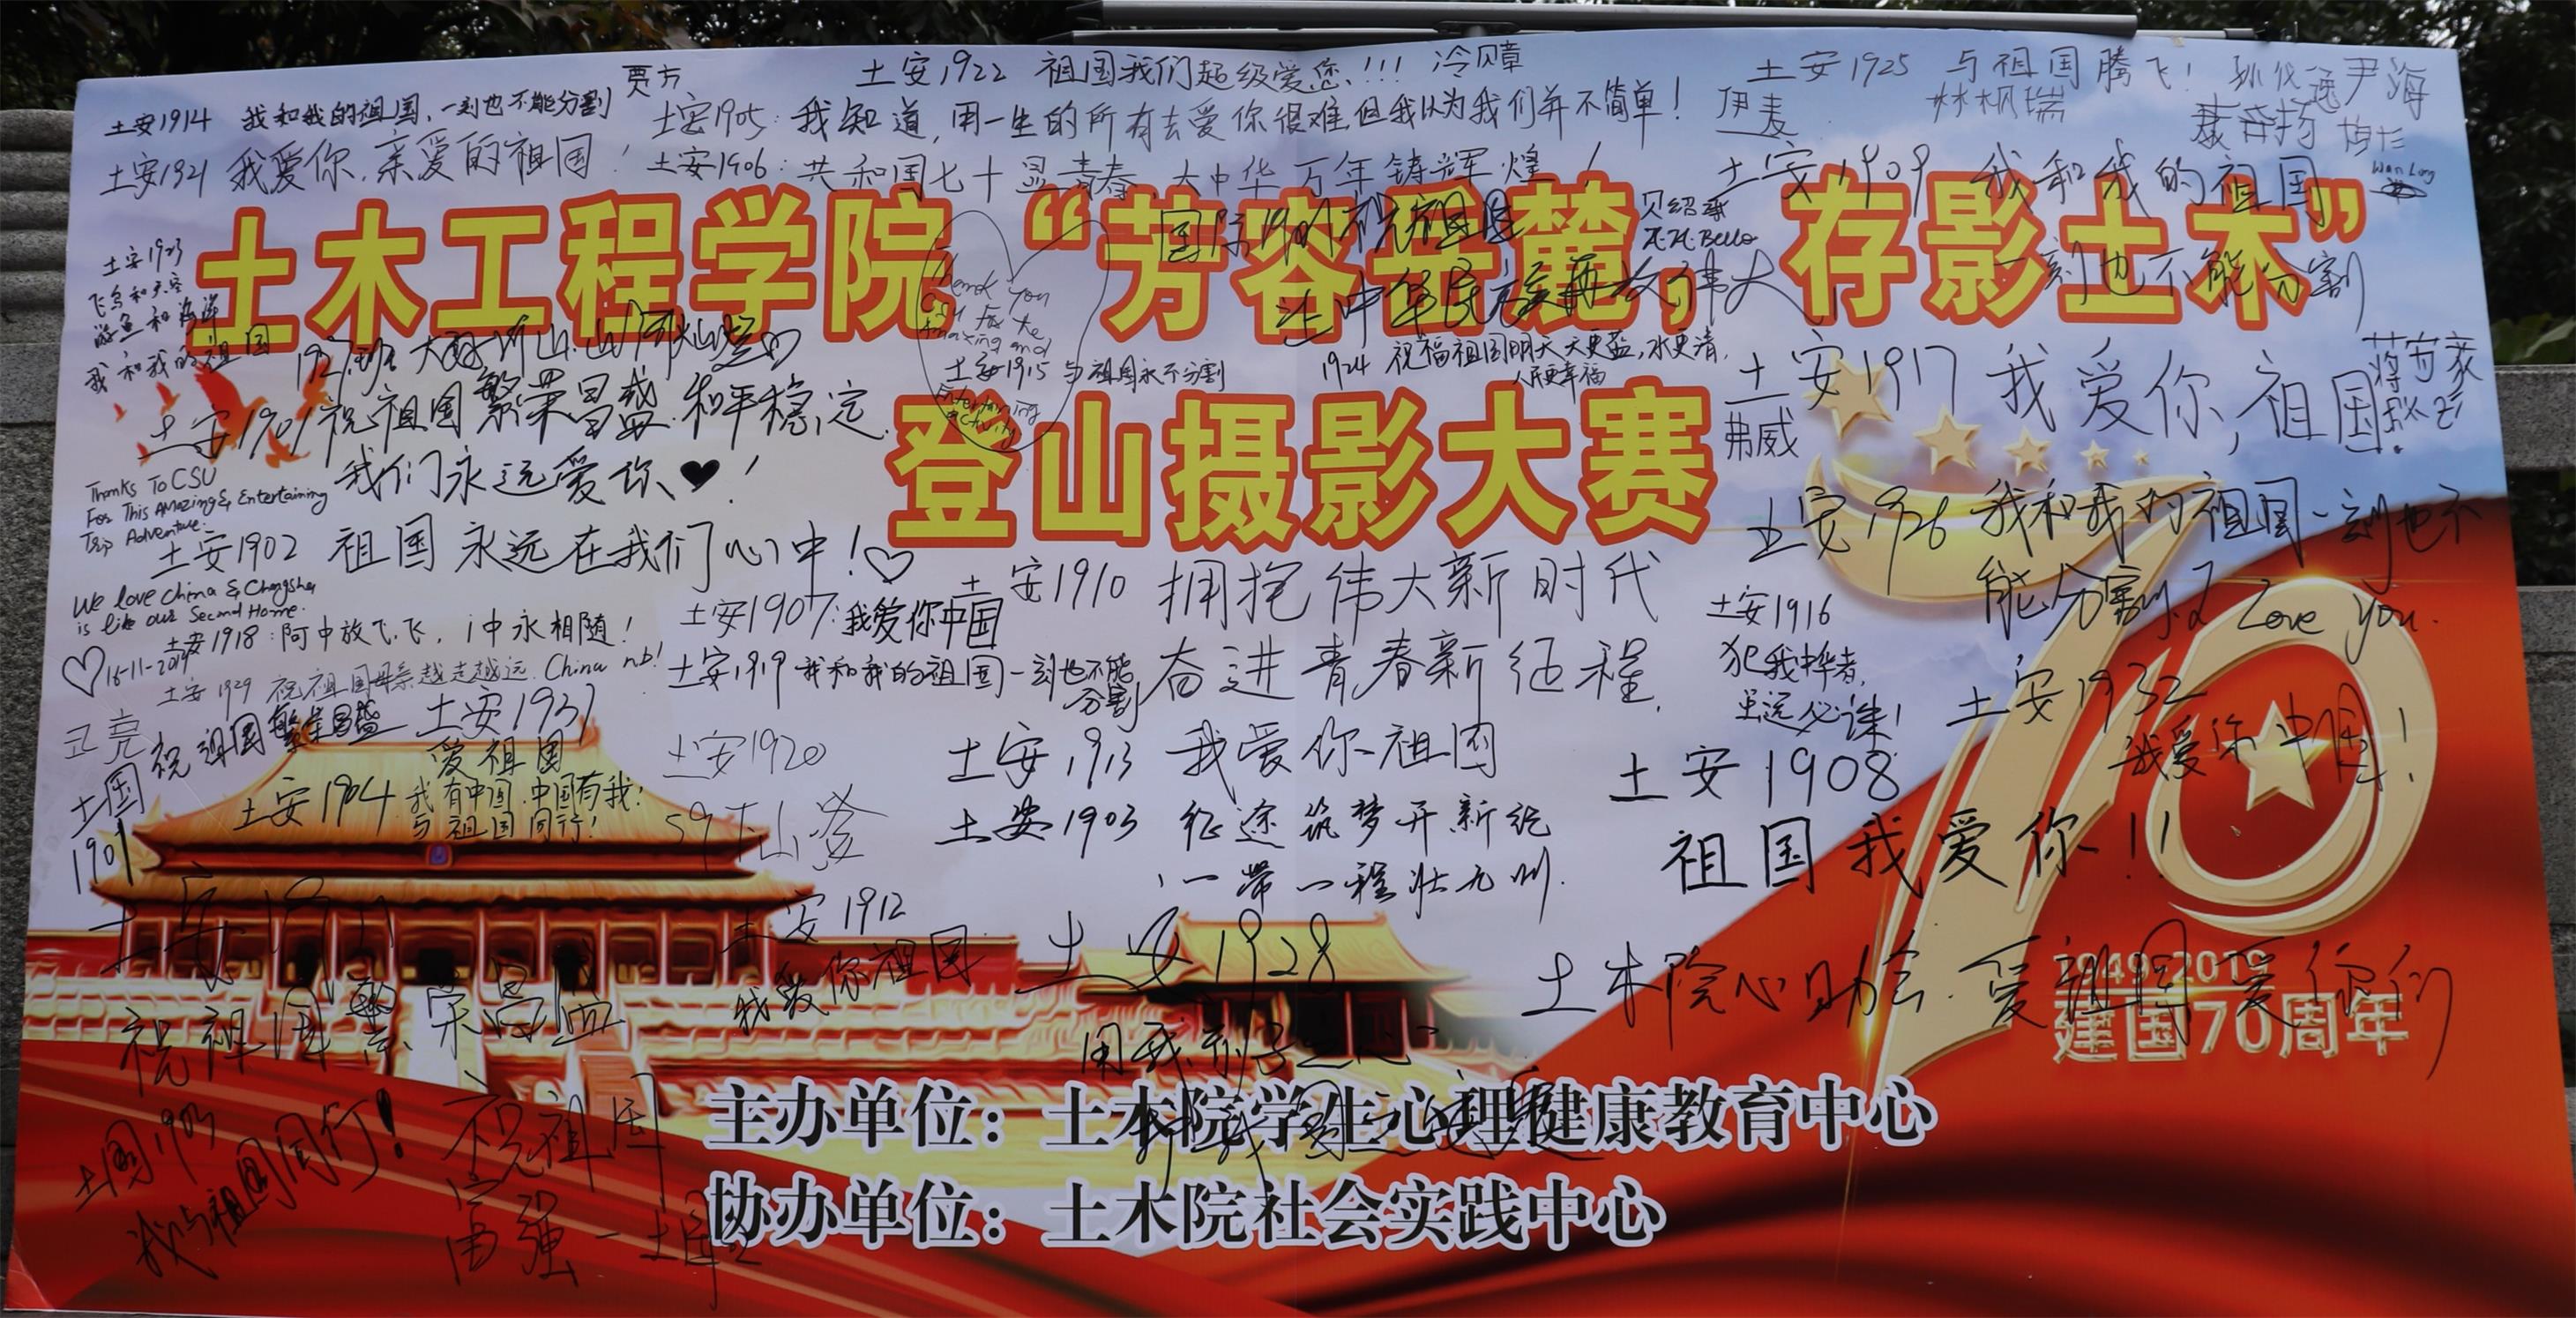 土安1922 祖国我们超级爱您!!! 冷贝障
土安1925 与祖国腾飞!
尹海
贾方
土安1914 我和我的祖国,一刻也不能分割
土安1905:我知道,用一生的所有去爱你很难,但我认为我们并不简单!
伊麦
林枫瑞
土安1921 我爱你,亲爱的祖国!
土安1906:共和国七十显青春,大中华万年铸辉煌!
土安1909 我和我的祖国
一刻也不能分割
Wan Long
土木工程学院“芳容岳麓,存影土木”
登山摄影大赛
贝绍承
Bello
土安1923
飞鸟和天空
游鱼和海洋
我和我的祖国
Thank you
CSU for the
Amazing and
Entertaining
activity
土安1915 与祖国永不分割
1924 祝福祖国明天天更蓝,水更清,
人民更幸福
土安1917 我爱你,祖国.
弗威
土安1901 祝祖国繁荣昌盛.和平稳定.
我们永远爱你♥!
Thanks To CSU
For This Amazing & Entertaining
Trip Adventure.
土安1902 祖国永远在我们心中!♡
土安1926 我和我的祖国一刻也不
能分割.I Love you.
We love china & Changsha
is like our Second Home.
♡16-11-2019
土安1918:阿中放飞飞,i中永相随!
土安1929 祝祖国母亲越走越远.China nb!
土安1907:我爱你中国
土安1910 拥抱伟大新时代
奋进青春新征程.
土安1919 我和我的祖国一刻也不能
分割
土安1916
犯我中华者,
虽远必诛!
土安1932
我爱你中国!
土安1931
爱祖国
祝祖国繁荣昌盛
土国
1901
土安1904 我有中国.中国有我!
与祖国同行!
土安1920
土安1913 我爱你祖国
土安1903 征途筑梦开新纪
一带一程壮九州.
土安1908
祖国我爱你!!
土安1911
祝祖国繁荣昌盛
土安1912
我爱你祖国
土安1928
土木院心助会.爱祖国爱你们
1949-2019
建国70周年
土国1903
我与祖国同行!
祝祖国
富强
主办单位:土木院学生心理健康教育中心
协办单位:土木院社会实践中心